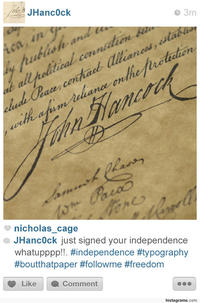 JHanc0ck
3m
by publish and
all political connection
clude Peace, contract Alliances, establish
with a firm reliance on the protection
John Hancock
Samuel Chase
Wm Paca
nicholas_cage
JHanc0ck just signed your independence
whatupppp!!. #independence #typography
#boutthatpaper #followme #freedom
Like
Comment
Instagrams.com